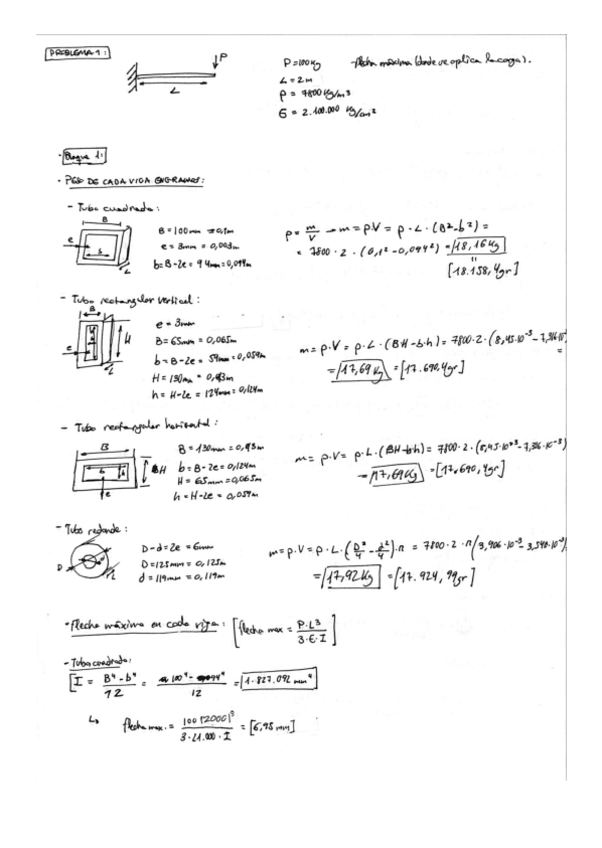 PROBLEMA 1:
P
L
P = 100 Kg
- flecha máxima (donde se aplica la carga).
L = 2 m
ρ = 7800 Kg/m³
E = 2.100.000 Kg/cm²
- Bloque 1:
- PESO DE CADA VIGA EN GRAMOS:
- Tubo cuadrado:
B
e
b
L
B = 100 mm = 0,1 m
e = 3 mm = 0,003 m
b = B-2e = 94 mm = 0,094 m
ρ = m/V → m = ρ.V = ρ · L · (B² - b²) =
= 7800 · 2 · (0,1² - 0,094²) = 18,16 Kg
"
[18.158,4 gr]
- Tubo rectangular vertical:
B
e
H
L
e = 3 mm
B = 65 mm = 0,065 m
b = B-2e = 59 mm = 0,059 m
H = 130 mm = 0,13 m
h = H-2e = 124 mm = 0,124 m
m = ρ·V = ρ·L·(BH - b·h) = 7800·2·(8,45·10⁻³ - 7,316·10
=
= 17,69 Kg = [17.690,4 gr]
- Tubo rectangular horizontal:
B
b
h
H
e
B = 130 mm = 0,13 m
b = B-2e = 0,124 m
H = 65 mm = 0,065 m
h = H-2e = 0,059 m
m = ρ·V = ρ·L·(BH - bh) = 7800·2·(8,45·10⁻³ - 7,316·10⁻³)
= 17,69 Kg = [17.690,4 gr]
- Tubo redondo:
D
d
L
D - d = 2e = 6 mm
D = 125 mm = 0,125 m
d = 119 mm = 0,119 m
m = ρ·V = ρ·L·(D²/4 - d²/4)·π = 7800·2·π(3,906·10⁻³ - 3,540·10⁻³)
= 17,92 Kg = [17.924,99 gr]
- flecha máxima en cada viga: [flecha max = P·L³ / 3·E·I]
- Tubo cuadrado:
[I = B⁴ - b⁴ / 12 = 100⁴ - 94⁴ / 12 = 1.827.092 mm⁴
↳ flecha max. = 100 (2000)³ / 3·21.000·I = [6,95 mm]